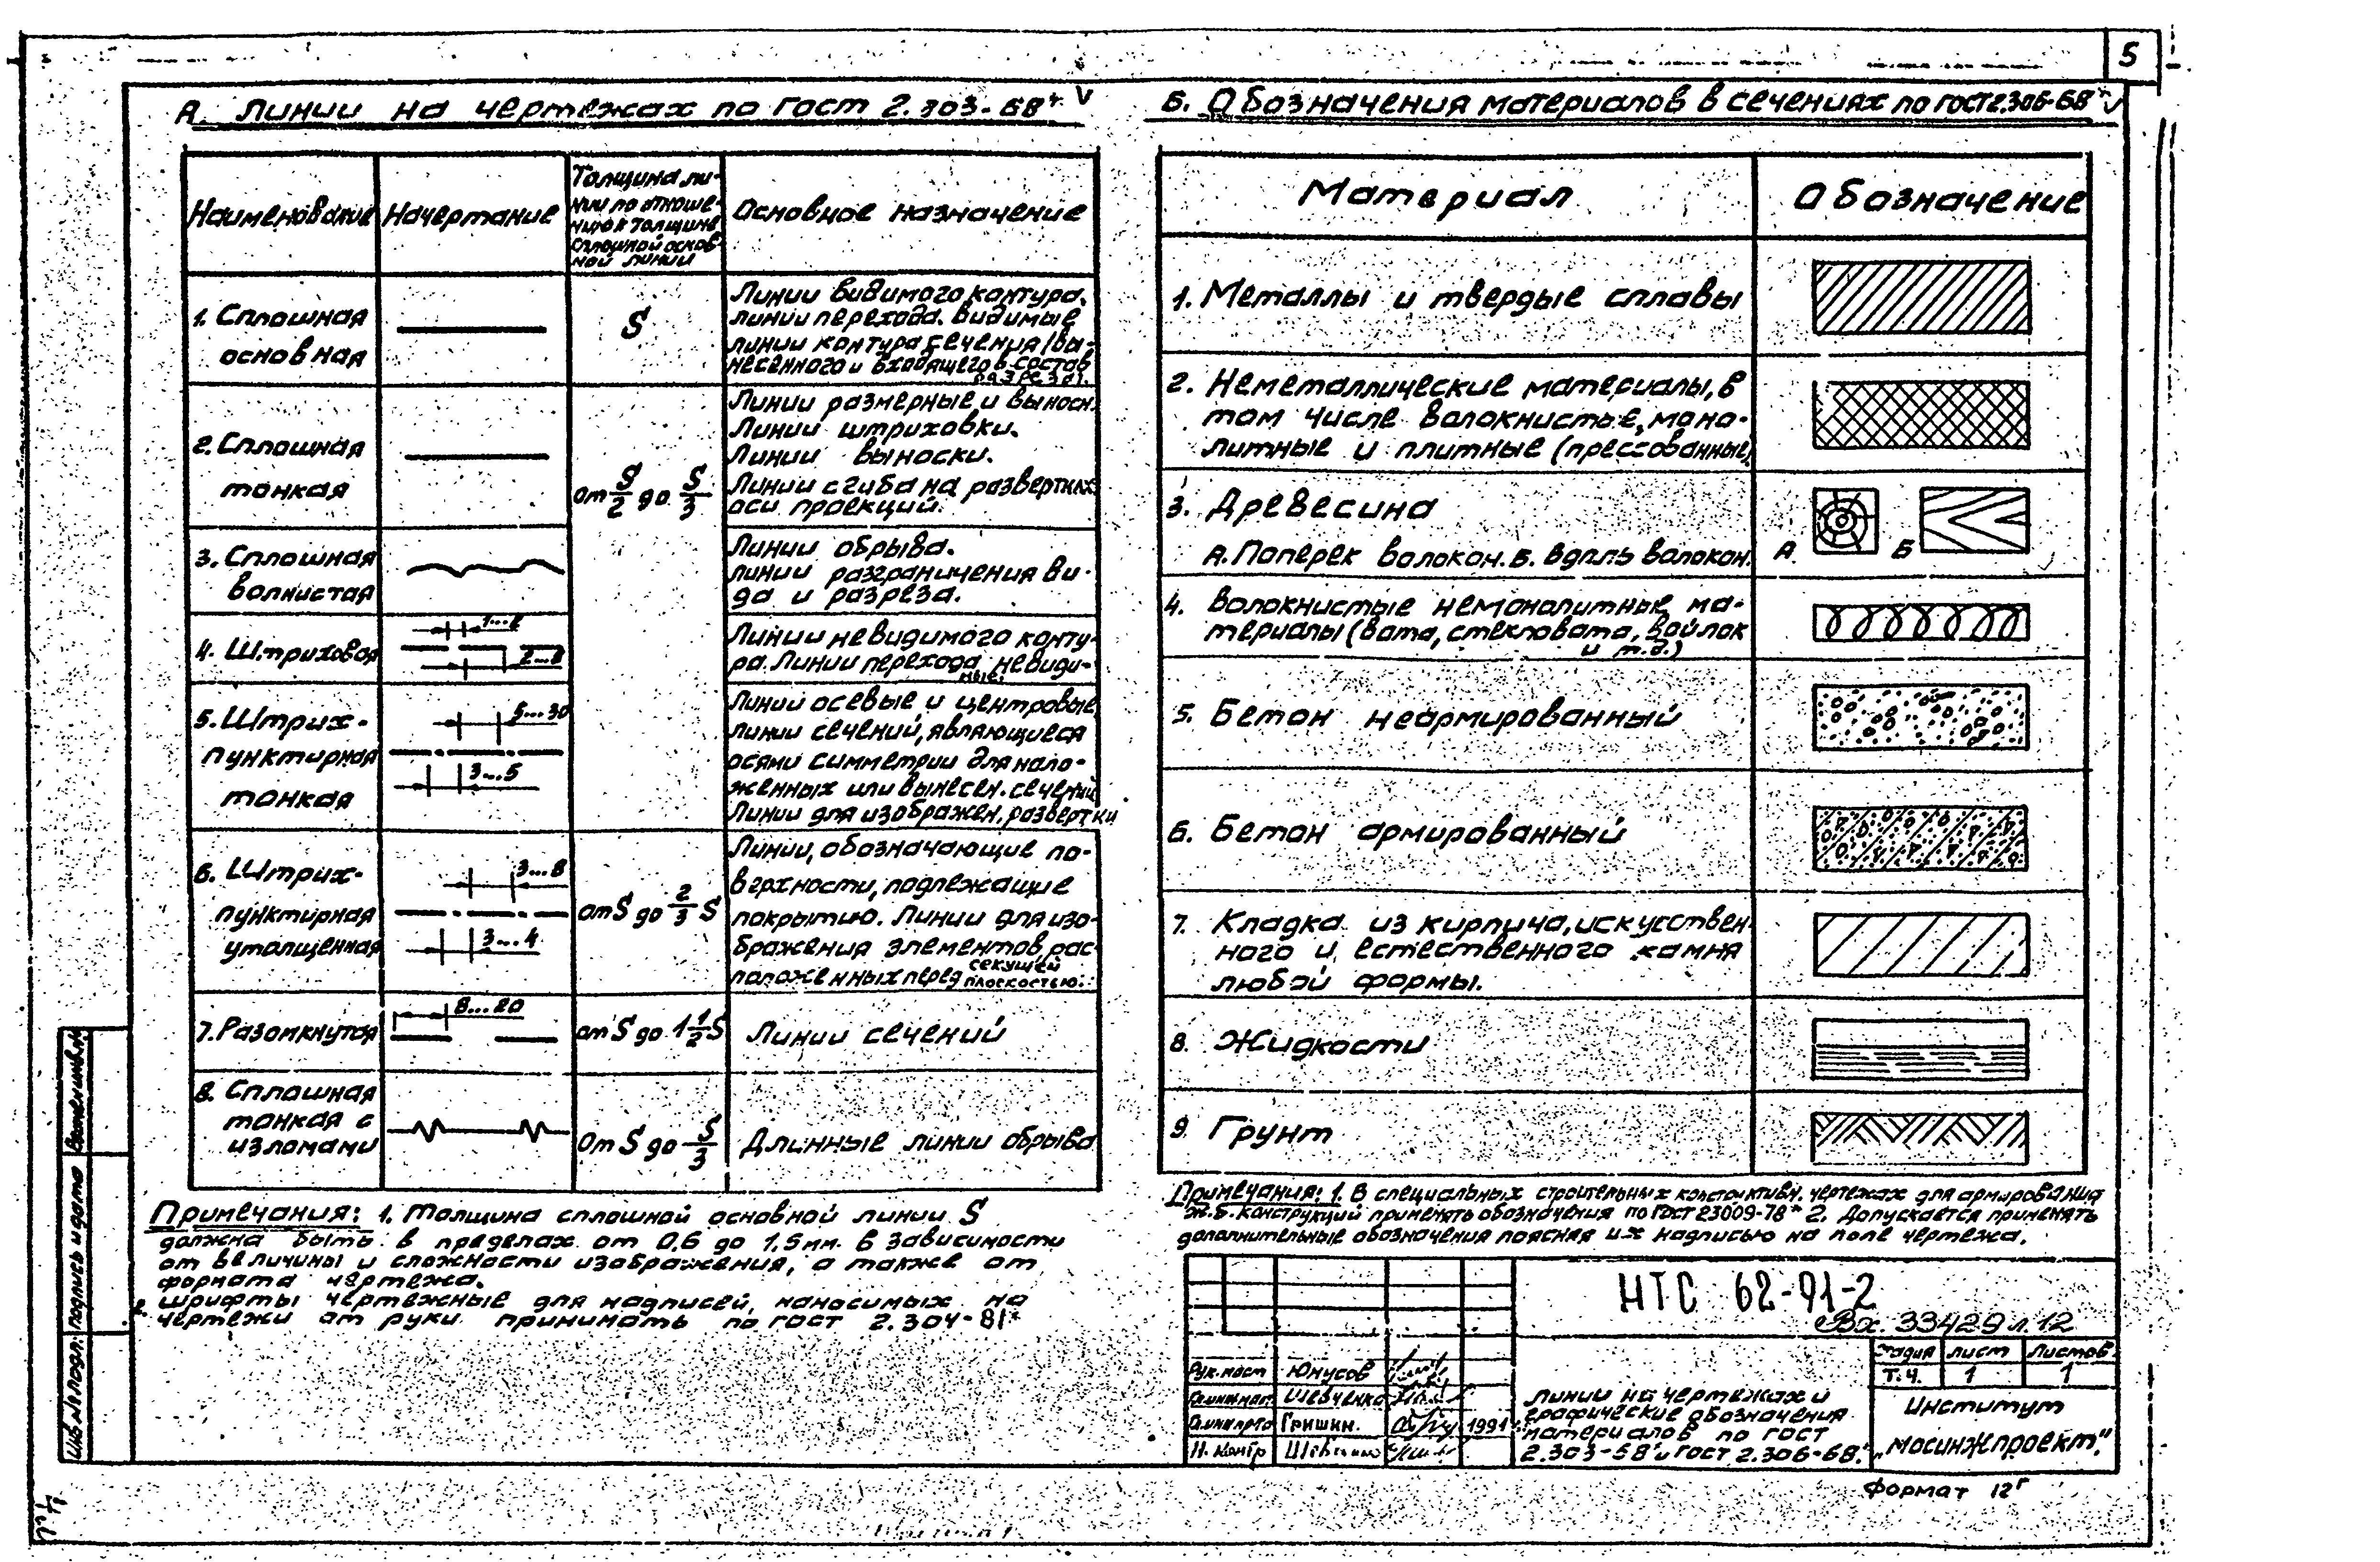 5
А. Линии на чертежах по ГОСТ 2.303-68*
Наименование
Начертание
Толщина ли-
нии по отноше-
нию к толщине
сплошной основ-
ной линии
Основное назначение
1. Сплошная
основная
S
Линии видимого контура.
линии перехода. видимые
линии контура сечения (вы-
несенного и входящего в состав
разреза).
2. Сплошная
тонкая
от S/2 до S/3
Линии размерные и выносн.
Линии штриховки.
Линии выноски.
Линии сгиба на развертках
оси проекций.
3. Сплошная
волнистая
Линии обрыва.
линии разграничения ви-
да и разреза.
4. Штриховая
1...2
2...8
Линии невидимого конту-
ра. Линии перехода невиди-
мые.
5. Штрих-
пунктирная
тонкая
5...30
3...5
Линии осевые и центровые
линии сечений, являющиеся
осями симметрии для нало-
женных или вынесен. сечений
Линии для изображен. развертки
6. Штрих-
пунктирная
утолщенная
3...8
3...4
от S до 2/3 S
Линии, обозначающие по-
верхности, подлежащие
покрытию. Линии для изо-
бражения элементов, рас-
положенных перед секущей
плоскостью.
7. Разомкнутая
8...20
от S до 1 1/2 S
Линии сечений
8. Сплошная
тонкая с
изломами
От S до S/3
Длинные линии обрыва
Примечания: 1. Толщина сплошной основной линии S
должна быть в пределах от 0,6 до 1,5 мм. в зависимости
от величины и сложности изображения, а также от
формата чертежа.
2. шрифты чертежные для надписей, наносимых на
чертежи от руки принимать по ГОСТ 2.304-81*
Б. Обозначения материалов в сечениях по ГОСТ 2.306-68*
Материал
Обозначение
1. Металлы и твердые сплавы
2. Неметаллические материалы, в
том числе волокнистые, моно-
литные и плитные (прессованные)
3. Древесина
А. Поперек волокон. Б. Вдоль волокон.
А
Б
4. Волокнистые немонолитные ма-
териалы (вата, стекловата, войлок
и т.д.)
5. Бетон неармированный
6. Бетон армированный
7. Кладка из кирпича, искусствен.
ного и естественного камня
любой формы.
8. Жидкости
9. Грунт
Примечания: 1. В специальных строительных конструктивн. чертежах для армирования
ж.б. конструкций применять обозначения по ГОСТ 23009-78* 2. Допускается применять
дополнительные обозначения поясняя их надписью на поле чертежа.
НТС 62-91-2
Вх. 33429 л. 12
Рук. маст
Юнусов
Шевченко
Гришин.
1991
Н. контр
Линии на чертежах и
графические обозначения
материалов по ГОСТ
2.303-68* и ГОСТ 2.306-68.*
Стадия
Лист
Листов
Т.Ч.
1
1
Институт
„Мосинжпроект."
Формат 12г
Взамен инв. №
Подпись и дата
Инв. № подл.